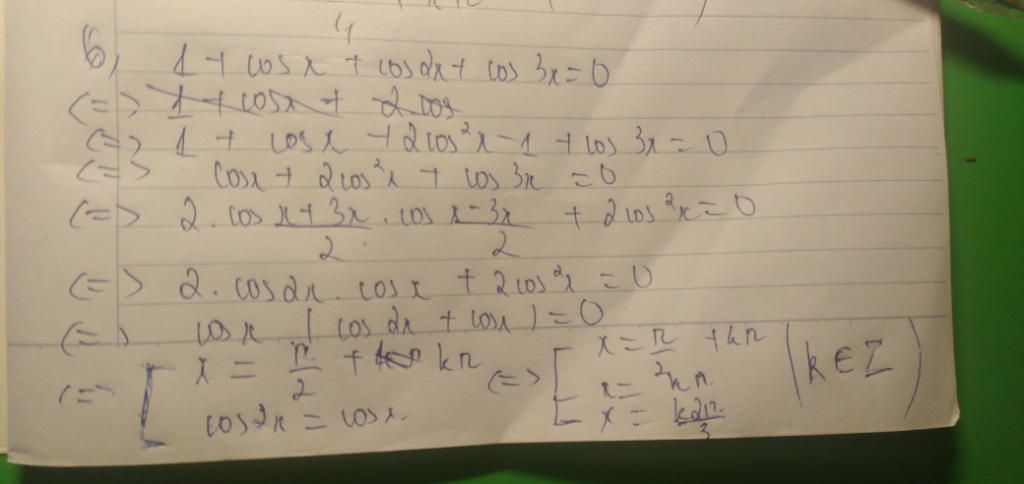 b, 1 + cos x + cos2x + cos 3x = 0
<=> 1 + cosx + 2 cos
<=> 1 + cos x + 2cos²x - 1 + cos 3x = 0
<=> cosx + 2cos²x + cos 3x = 0
<=> 2 . cos (x+3x)/2 . cos (x-3x)/2 + 2cos²x = 0
<=> 2 . cos2x . cos x + 2cos²x = 0
<=> cos x (cos 2x + cosx) = 0
<=> [ x = π/2 + kπ <=> [ x = π/2 + kπ (k ∈ Z)
cos2x = cosx. x = kπ
x = k2π/3